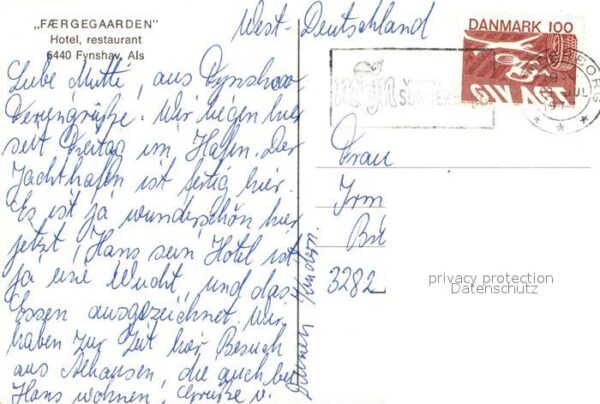 „FÆRGEGAARDEN"
Hotel, restaurant
6440 Fynshav, Als
West-Deutschland
DANMARK 100
GIV AGT
Liebe Mutti, aus Fynshav
Feriengrüße. Wir liegen hier
seit Freitag im Hafen. Der
Jachthafen ist fertig hier.
Es ist ja wunderschön hier
jetzt, Hans sein Hotel ist
ja eine Wucht, und das
Essen ausgezeichnet. Wir
haben zur Zeit hier Besuch
aus Ahausen, die auch bei
Hans wohnen, Grüße v.
Kindern.
Frau
Irm
3282
privacy protection
Datenschutz